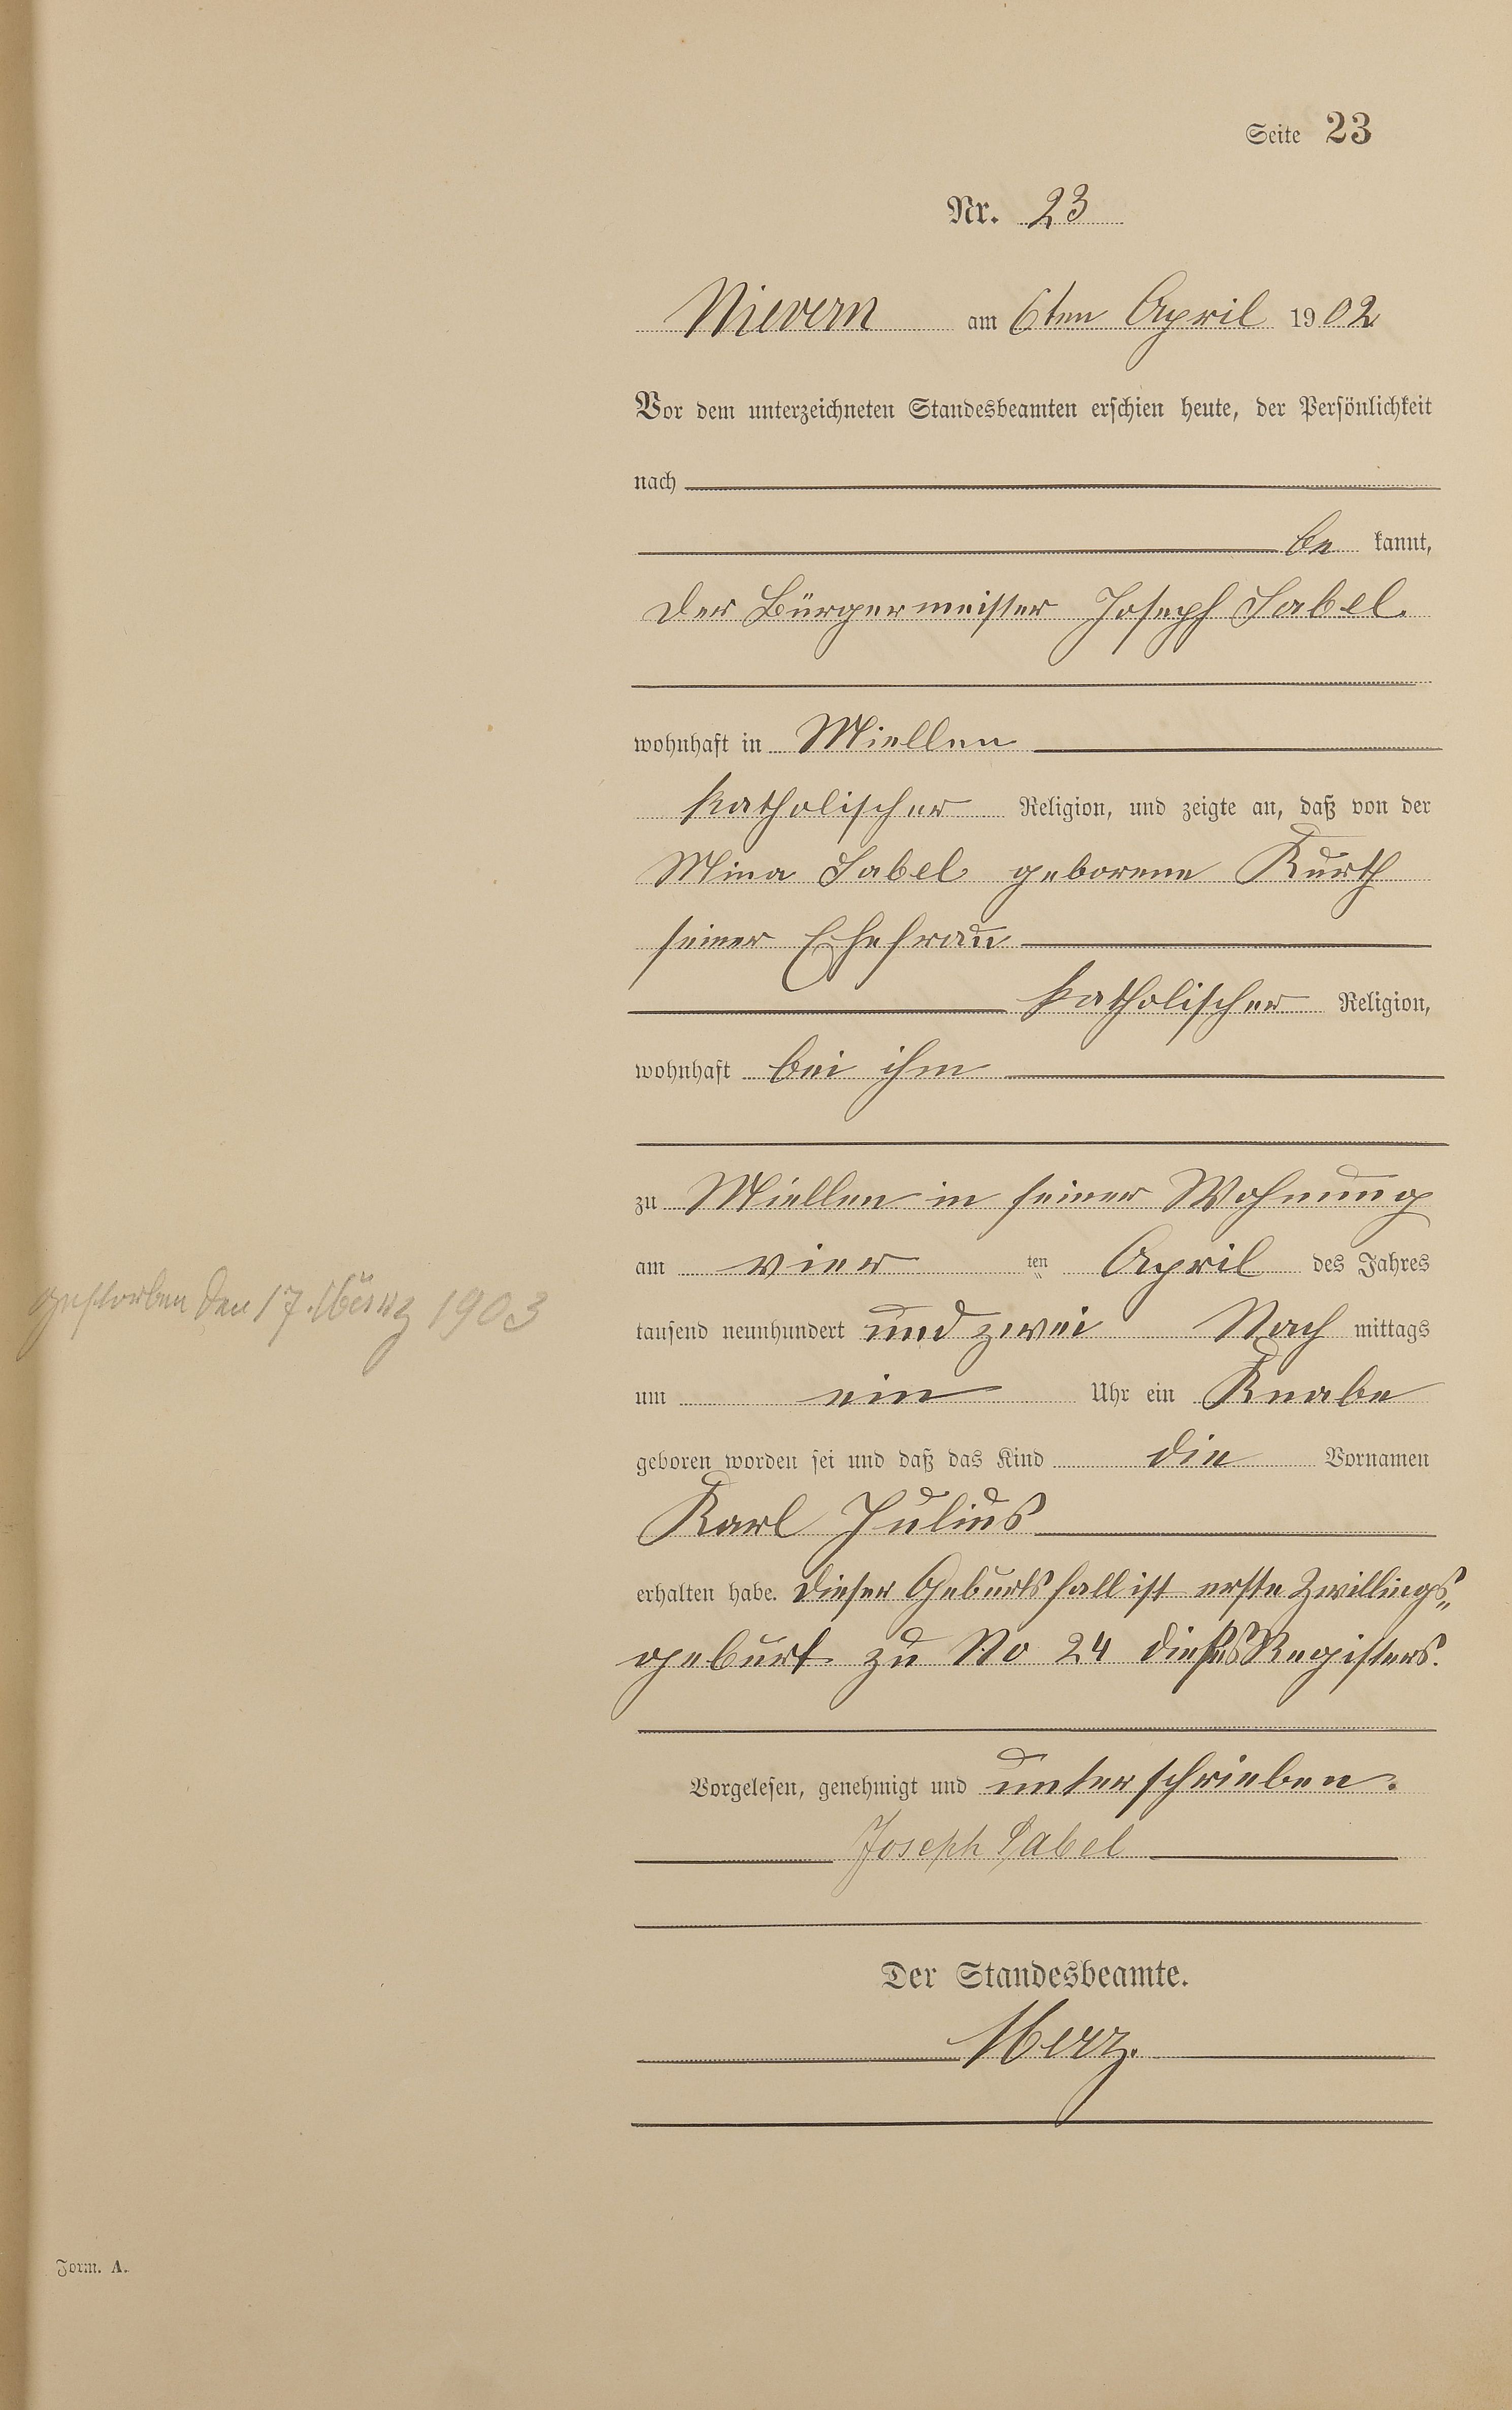 Seite 23
Nr. 23
Nievern am 6ten April 1902
Vor dem unterzeichneten Standesbeamten erschien heute, der Persönlichkeit
nach
be kannt,
der Bürgermeister Joseph Sabel.
wohnhaft in Miellen
katholischer Religion, und zeigte an, daß von der
Mina Sabel geborene Kurth
seiner Ehefrau
katholischer Religion,
wohnhaft bei ihm
zu Miellen in seiner Wohnung
am vier ten April des Jahres
gestorben den 17. März 1903
tausend neunhundert und zwei Nach mittags
um ein Uhr ein Knabe
geboren worden sei und daß das Kind die Vornamen
Karl Julius
erhalten habe. Dieser Geburtsfall ist erste Zwillings„
geburt zu No 24 dieses Registers.
Vorgelesen, genehmigt und unterschrieben.
Joseph Sabel
Der Standesbeamte.
Merz.
Form. A.